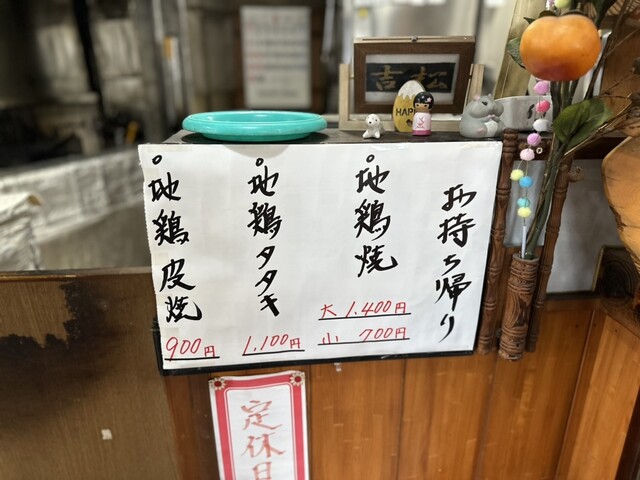 お持ち帰り
。地鶏焼
大 1.400円
小 700円
。地鶏タタキ
1,100円
。地鶏皮焼
900円
吉松
HAPPY
定休日